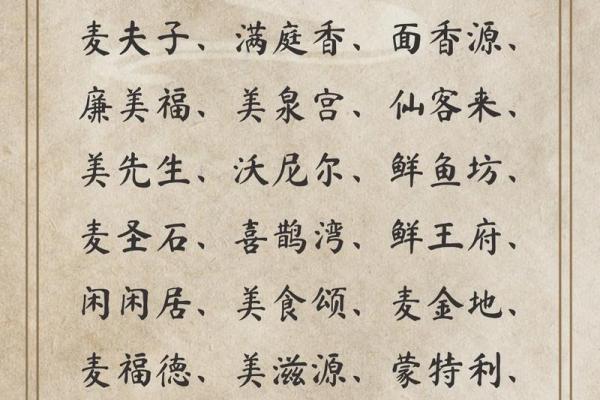 麦夫子、满庭香、面香源、
廉美福、美泉宫、仙客来、
美先生、沃尼尔、鲜鱼坊、
麦圣石、喜鹊湾、鲜王府、
闲闲居、美食颂、麦金地、
麦福德、美滋源、蒙特利、